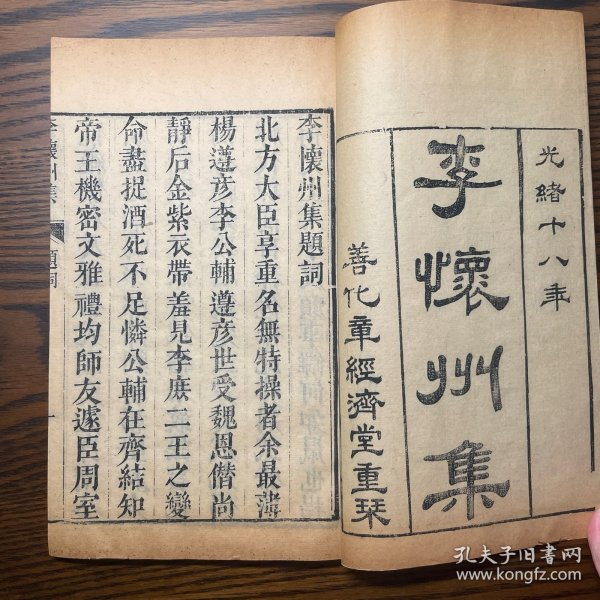 光緒十八年
李懷州集
善化章經濟堂重栞
李懷州集題詞
北方大臣享重名無特操者余最薄
楊遵彥李公輔遵彥世受魏恩偕尚
靜后金紫衣帶羞見李庶三王之變
命盡捉酒死不足憐公輔在齊結知
帝王機密文雅禮均師友遽臣周室
李懷州集
題詞
一
孔夫子旧书网
www.kongfz.com